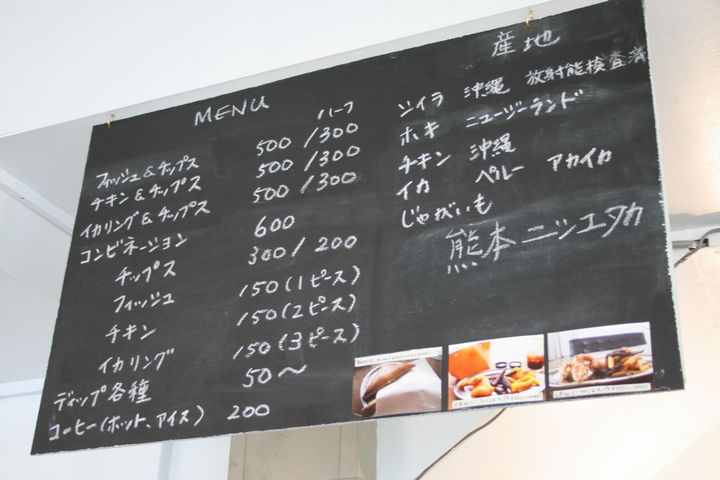 MENU
ハーフ
フィッシュ&チップス 500/300
チキン&チップス 500/300
イカリング&チップス 500/300
コンビネーション 600
チップス 300/200
フィッシュ 150(1ピース)
チキン 150(2ピース)
イカリング 150(3ピース)
ディップ各種 50〜
コーヒー(ホット、アイス) 200
産地
シイラ 沖縄 放射能検査済
ホキ ニュージーランド
チキン 沖縄
イカ ペルー アカイカ
じゃがいも
熊本ニシユタカ